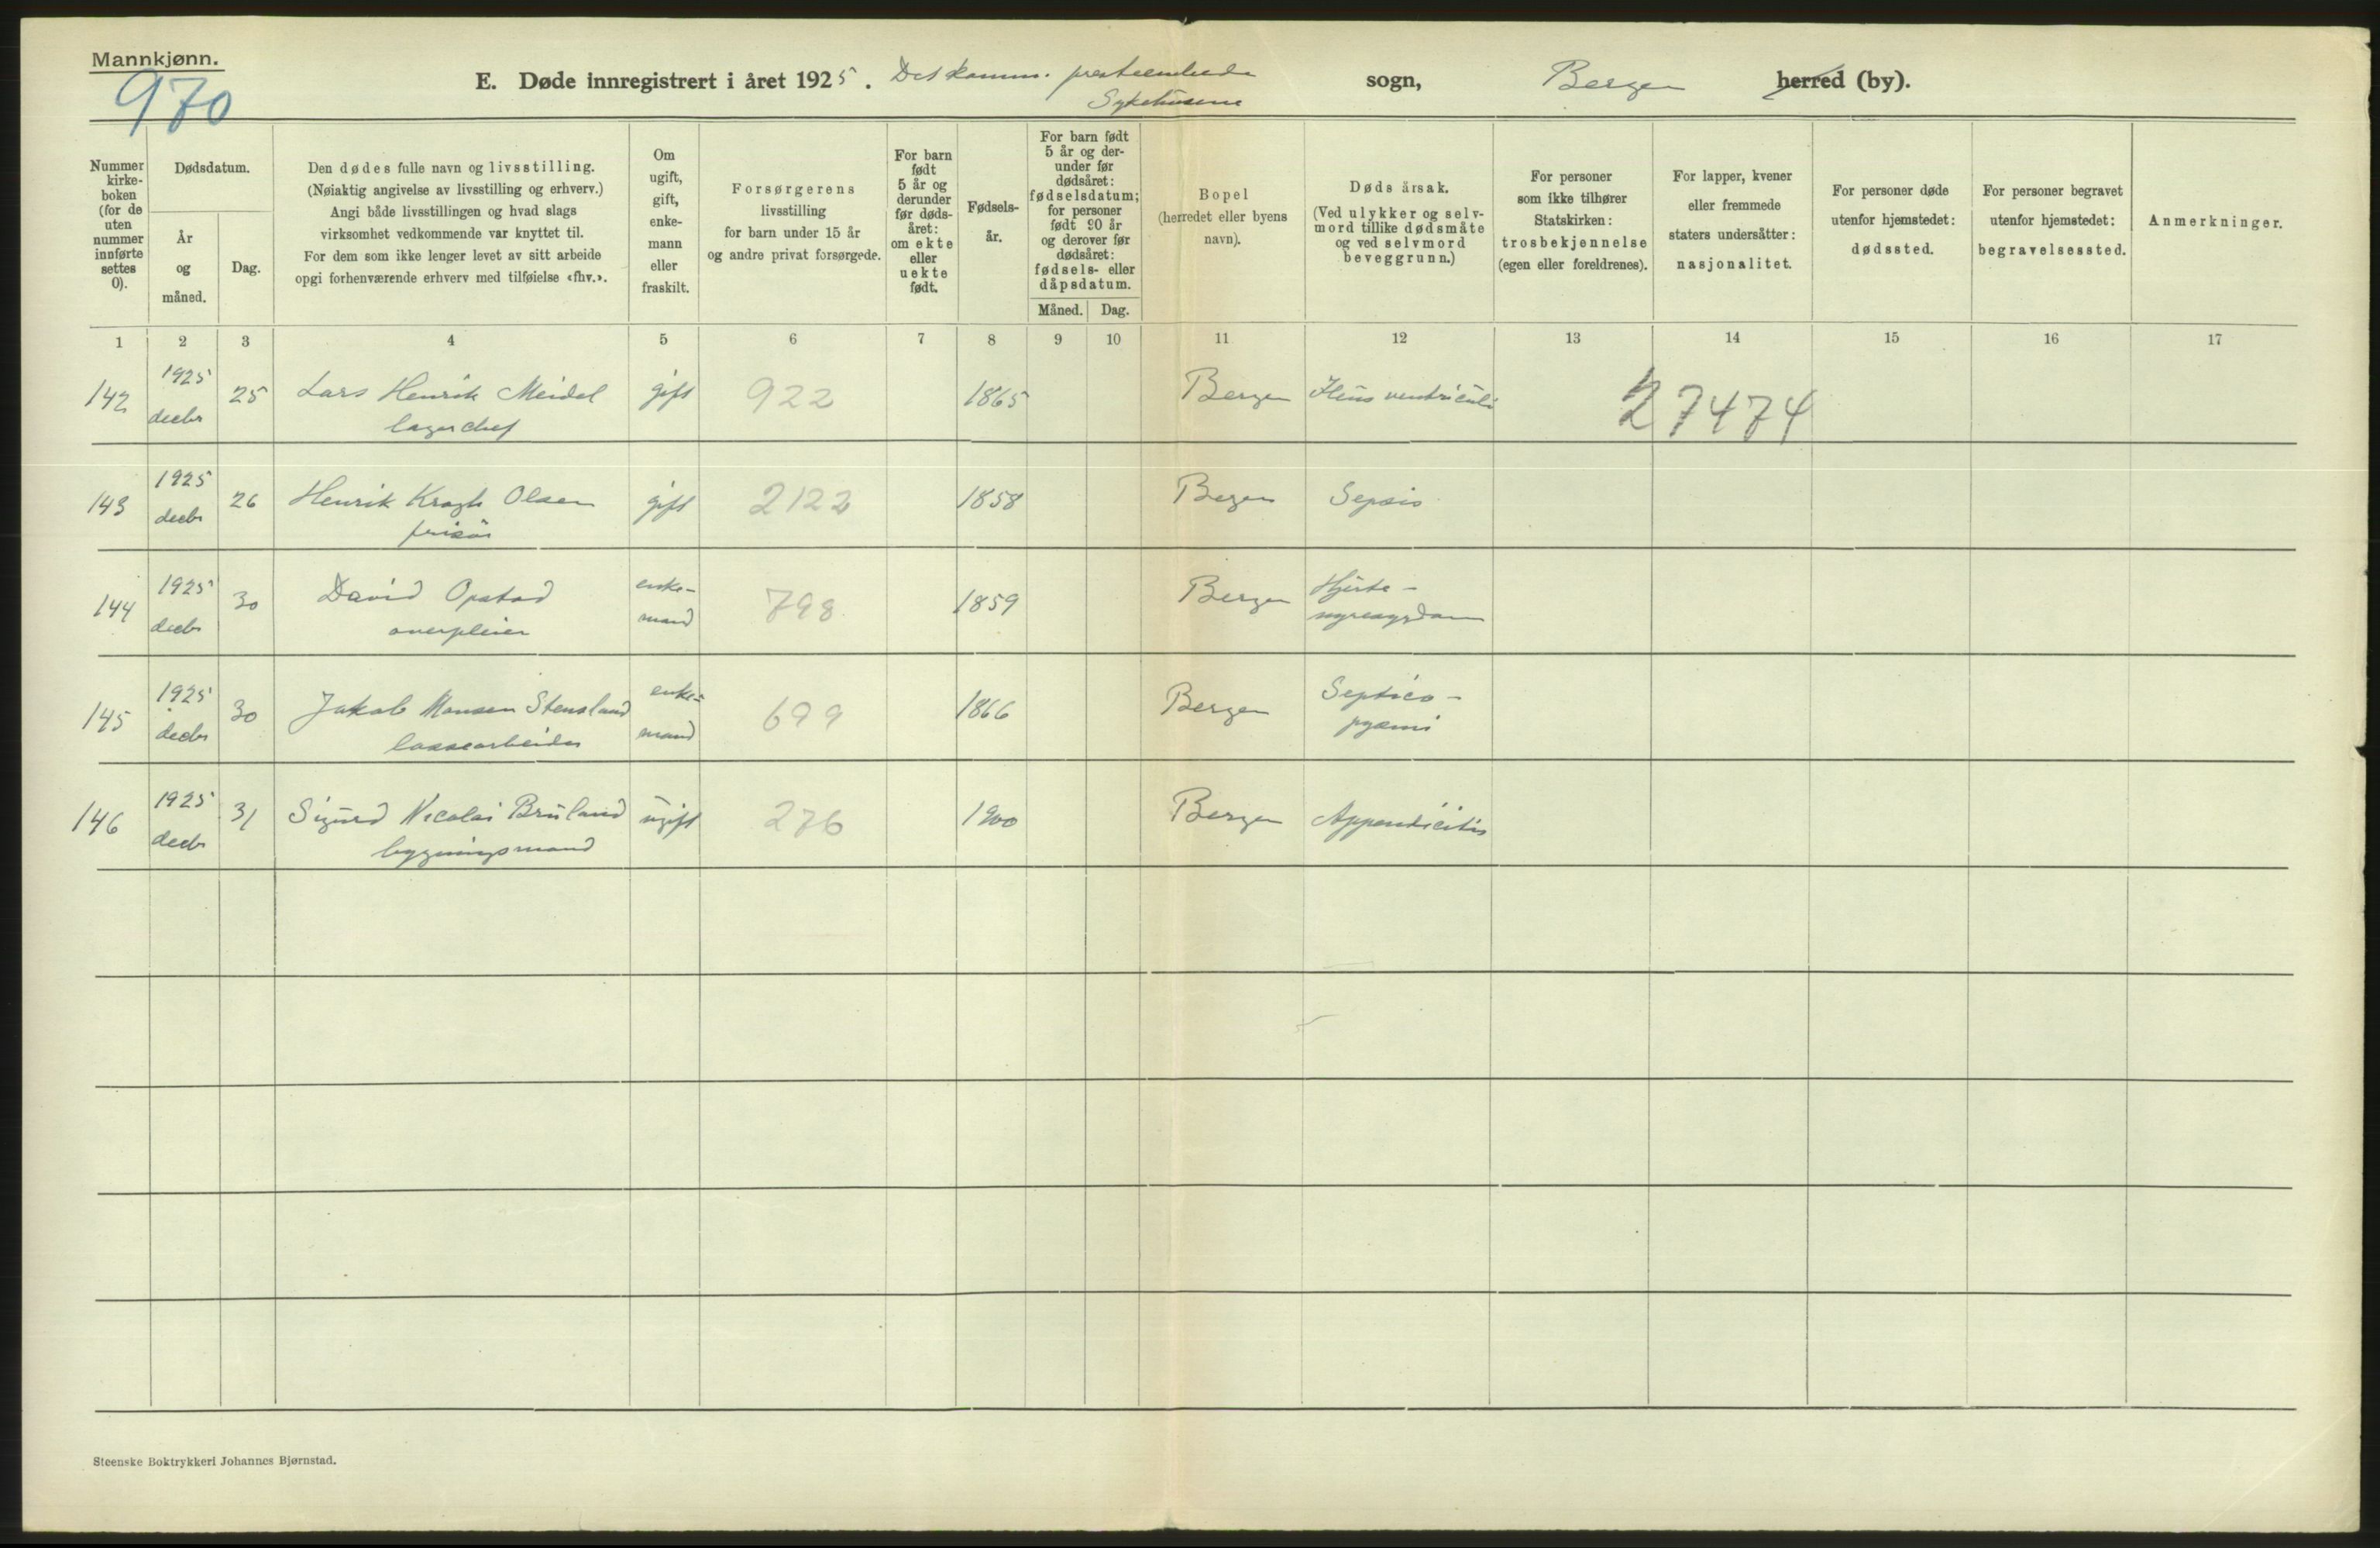 Mannkjønn.
970
E. Døde innregistrert i året 1925. Det komm. presteembede
Sykehusene
sogn, Bergen herred (by).
Nummer
kirke-
boken
(for de
uten
nummer
innførte
settes
0).
Dødsdatum.
År
og
måned.
Dag.
Den dødes fulle navn og livsstilling.
(Nøiaktig angivelse av livsstilling og erhverv.)
Angi både livsstillingen og hvad slags
virksomhet vedkommende var knyttet til.
For dem som ikke lenger levet av sitt arbeide
opgi forhenværende erhverv med tilføielse «fhv.».
Om
ugift,
gift,
enke-
mann
eller
fraskilt.
Forsørgerens
livsstilling
for barn under 15 år
og andre privat forsørgede.
For barn
født
5 år og
derunder
før døds-
året:
om ekte
eller
uekte
født.
Fødsels-
år.
For barn født
5 år og der-
under før
dødsåret:
fødselsdatum;
for personer
født 90 år
og derover før
dødsåret:
fødsels- eller
dåpsdatum.
Måned. Dag.
Bopel
(herredet eller byens
navn).
Dødsårsak.
(Ved ulykker og selv-
mord tillike dødsmåte
og ved selvmord
beveggrunn.)
For personer
som ikke tilhører
Statskirken:
trosbekjennelse
(egen eller foreldrenes).
For lapper, kvener
eller fremmede
staters undersåtter:
nasjonalitet.
For personer døde
utenfor hjemstedet:
dødssted.
For personer begravet
utenfor hjemstedet:
begravelsessted.
Anmerkninger.
1 2 3 4 5 6 7 8 9 10 11 12 13 14 15 16 17
142 1925 decbr 25 Lars Henrik Meidel gift 922 1865 Bergen ventriculi 27474
lagerchef
143 1925 decbr 26 Henrik Krogh Olsen gift 2122 1858 Bergen Sepsis
frisør
144 1925 decbr 30 David Opstad enke- 798 1859 Bergen Hjerte-
overpleier mand nyresygdom
145 1925 decbr 30 Jakob Monsen Stensland enke- 699 1866 Bergen Septico-
lossearbeider mand pyæmi
146 1925 decbr 31 Sigurd Nicolai Bruland ugift 276 1900 Bergen Appendicitis
bygningsmand
Steenske Boktrykkeri Johannes Bjørnstad.